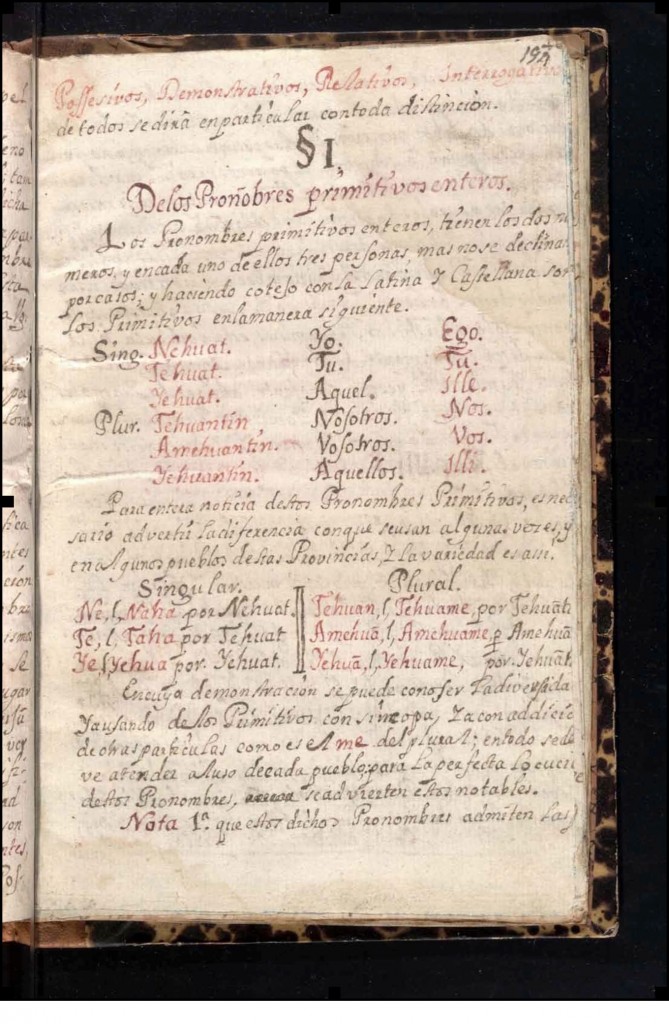 194
Possesivos, Demonstrativos, Relativos, Interrogativo
de todos se dirà en particular con toda distincion.
§ I.
De los Proñobres primitivos enteros.
Los Pronombres primitivos enteros, tienen los dos nu
meros, y en cada uno de ellos tres personas, mas no se declinan
por casos; y haciendo cotejo con la Latina y Castellana son
los Primitivos en la manera siguiente.
Sing. Nehuat. Yo. Ego.
Tehuat. Tu. Tu.
Yehuat. Aquel. Ille.
Plur. Tehuantin Nosotros. Nos.
Amehuantin. Vosotros. Vos.
Yehuantin. Aquellos. Illi.
Para entera noticia destos Pronombres Primitivos, es nec
sario advertir la diferencia con que se usan algunas vezes, y
en algunos pueblos destas Provincias, y la variedad es assi.
Singular. Plural.
Ne, l, Naha por Nehuat. Tehuan, l, Tehuame, por Tehuãti
Te, l, Taha por Tehuat Amehuã, l, Amehuame, p Amehuã
Ye, l, Yehua por Yehuat. Yehuã, l, Yehuame, por Yehuãt.
En cuya demonstración se puede conoser la diversida
ya usando de los Primitivos con sincopa, ya con addicio
de otras particulas como es el me del plural; en todo se de
ve atender al uso de cada pueblo; para la perfecta locuci
destos Pronombres, se advierten estos notables.
Nota 1ª. que estos dichos Pronombres admiten las